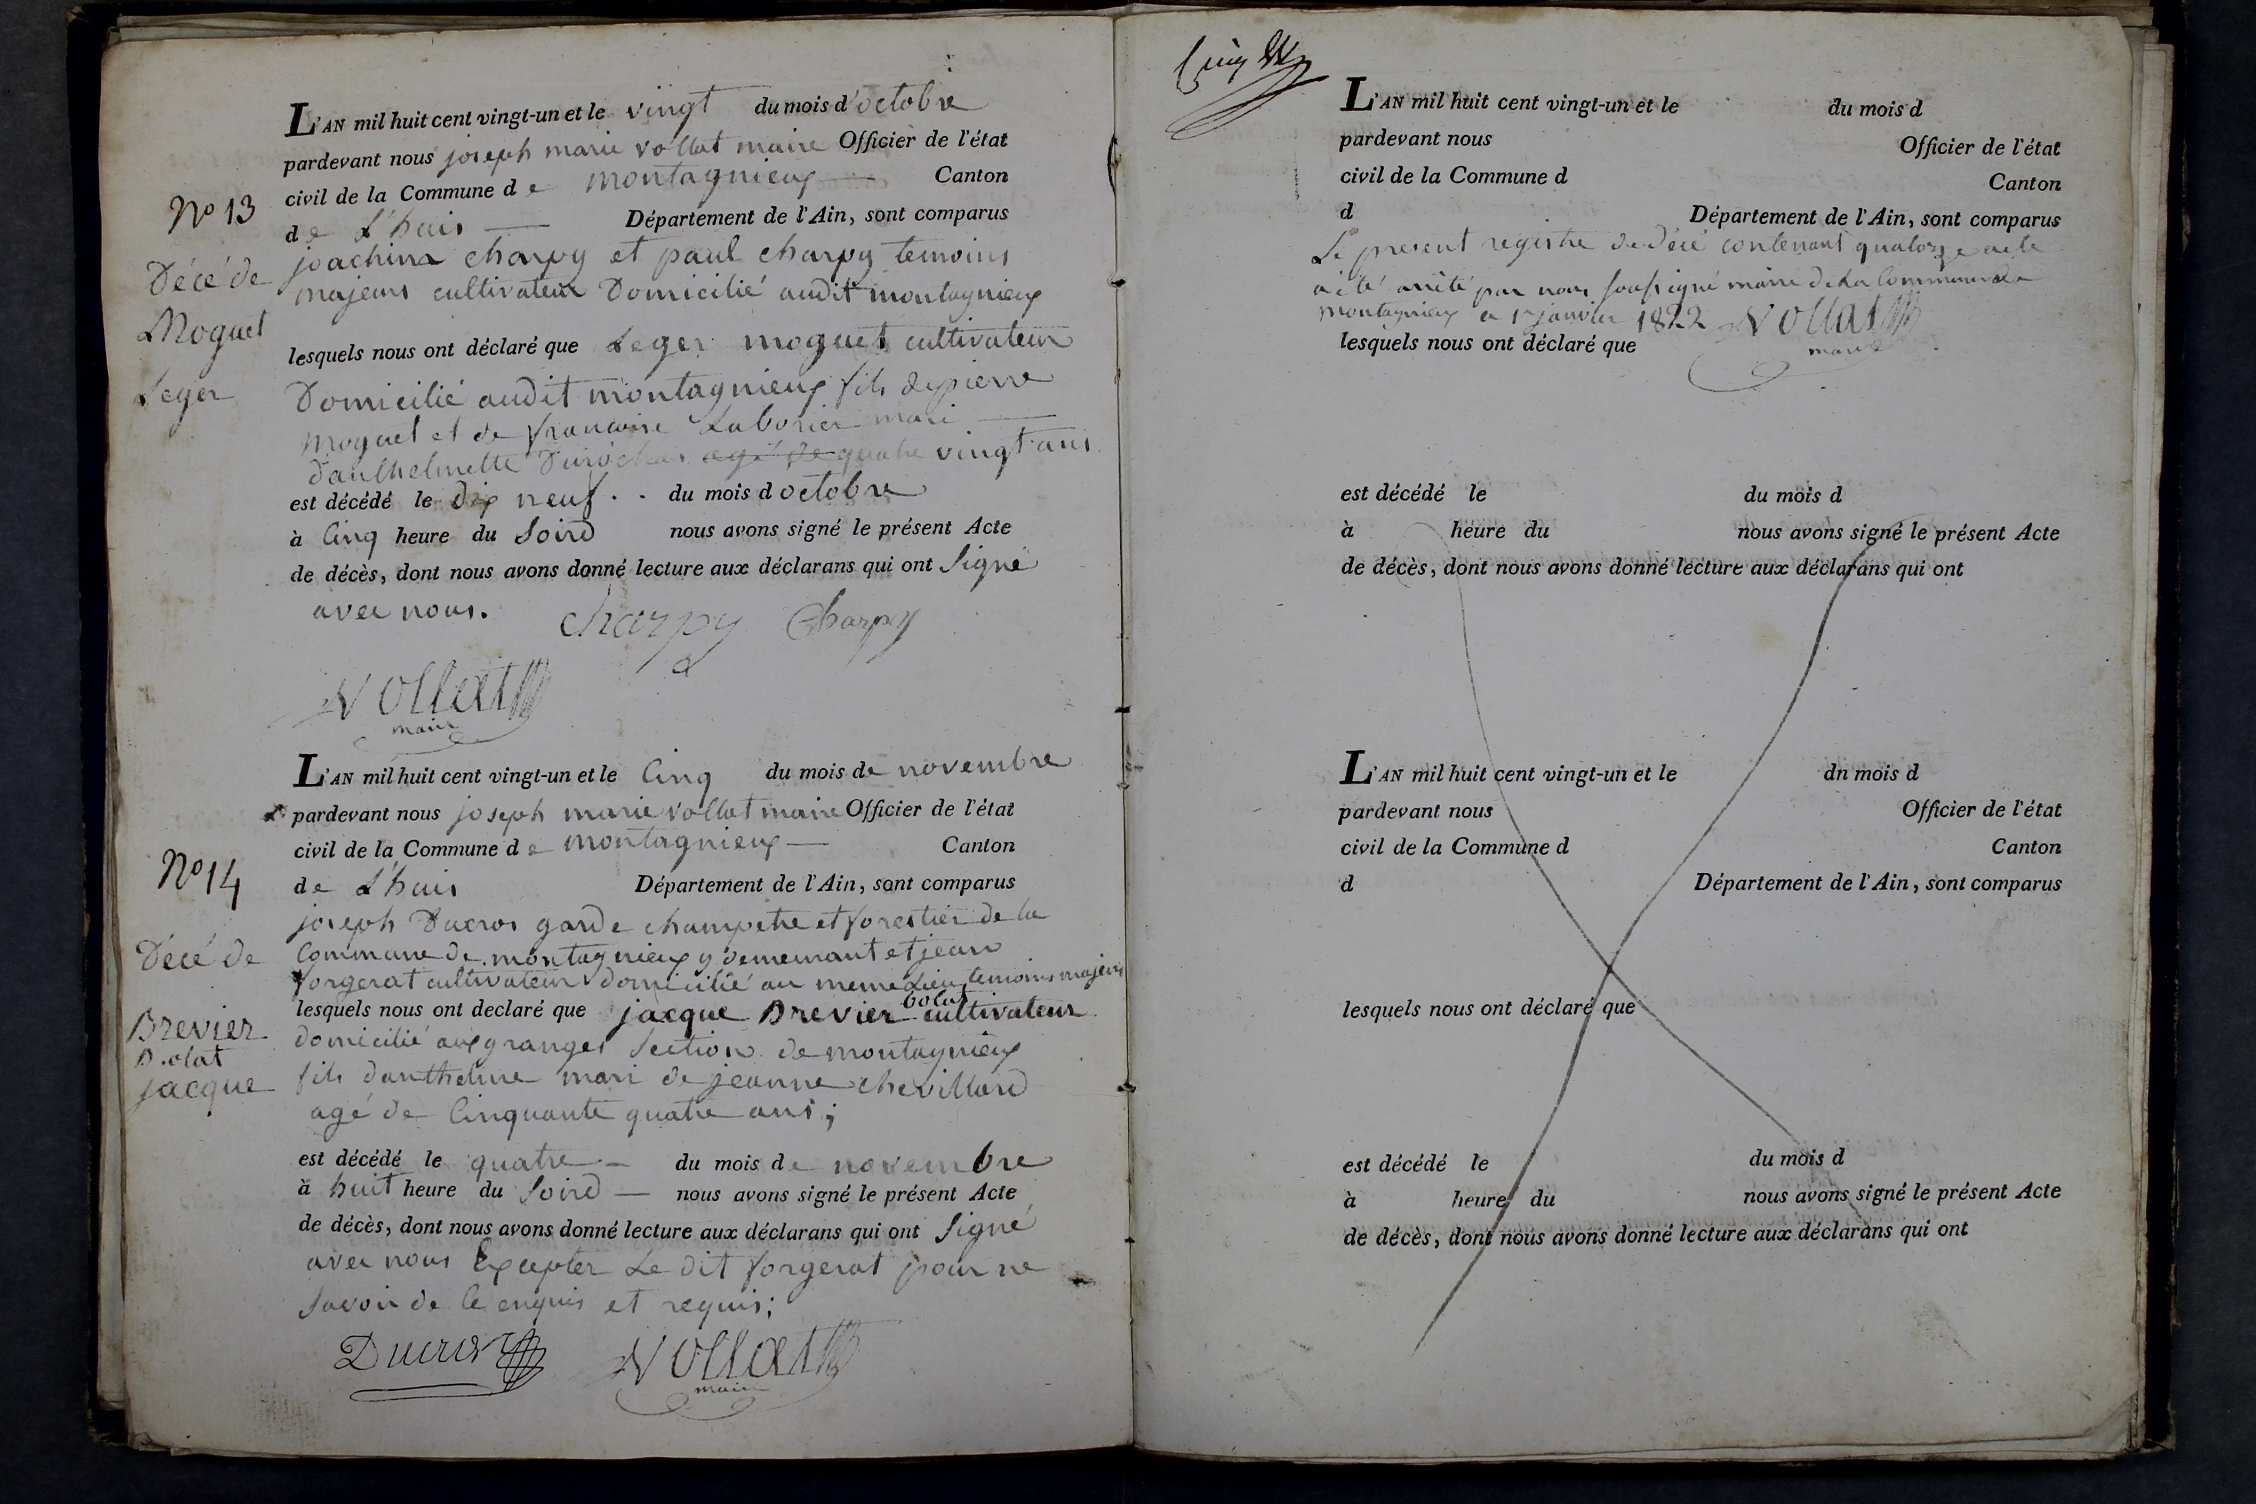 L'AN mil huit cent vingt-un et le vingt du mois d'octobre
pardevant nous joseph marie vollat maire Officier de l'état
civil de la Commune de montagnieux Canton
de L'huis Département de l'Ain, sont comparus
joachim charpy et paul charpy temoins
majeurs cultivateur Domicilié audit montagnieux
lesquels nous ont déclaré que Leger moguet cultivateur
Domicilié audit montagnieux fils de pierre
moguet et de francoise Laborier mari
d'anthelmette agé de quatre vingt ans
est décédé le dix neuf du mois d octobre
à Cinq heure du Soird nous avons signé le présent Acte
de décès, dont nous avons donné lecture aux déclarans qui ont Signé
avec nous.
charpy Charpy
Vollat
maire
No 13
Décé de
Moguet
Leger
L'AN mil huit cent vingt-un et le Cinq du mois de novembre
pardevant nous joseph marie vollat maire Officier de l'état
civil de la Commune de montagnieux Canton
de L'huis Département de l'Ain, sont comparus
joseph Ducros garde champetre et forestier de la
Commune de montagnieux y demeurant et jean
forgerat cultivateur domicilié au meme Lieu temoins majeurs
bolat
lesquels nous ont declaré que jacque Brevier cultivateur
domicilié aux granges Section de montagnieux
fils d'anthelme mari de jeanne chevillard
agé de Cinquante quatre ans;
est décédé le quatre du mois de novembre
à huit heure du Soird nous avons signé le présent Acte
de décès, dont nous avons donné lecture aux déclarans qui ont Signé
avec nous Excepter Le dit forgerat pour ne
Savoir de Ce enquis et requis;
Ducros Vollat
maire
No 14
Décé de
Brevier
Bolat
jacque
L'AN mil huit cent vingt-un et le du mois d
pardevant nous Officier de l'état
civil de la Commune d Canton
d Département de l'Ain, sont comparus
Le present registre de décé contenant quatorze acte
a été arrêté par nous Soussigné maire de La Commune de
montagnieux Le 1er janvier 1822 Vollat
maire
lesquels nous ont déclaré que
est décédé le du mois d
à heure du nous avons signé le présent Acte
de décès, dont nous avons donné lecture aux déclarans qui ont
L'AN mil huit cent vingt-un et le dn mois d
pardevant nous Officier de l'état
civil de la Commune d Canton
d Département de l'Ain, sont comparus
lesquels nous ont déclaré que
est décédé le du mois d
à heure du nous avons signé le présent Acte
de décès, dont nous avons donné lecture aux déclarans qui ont